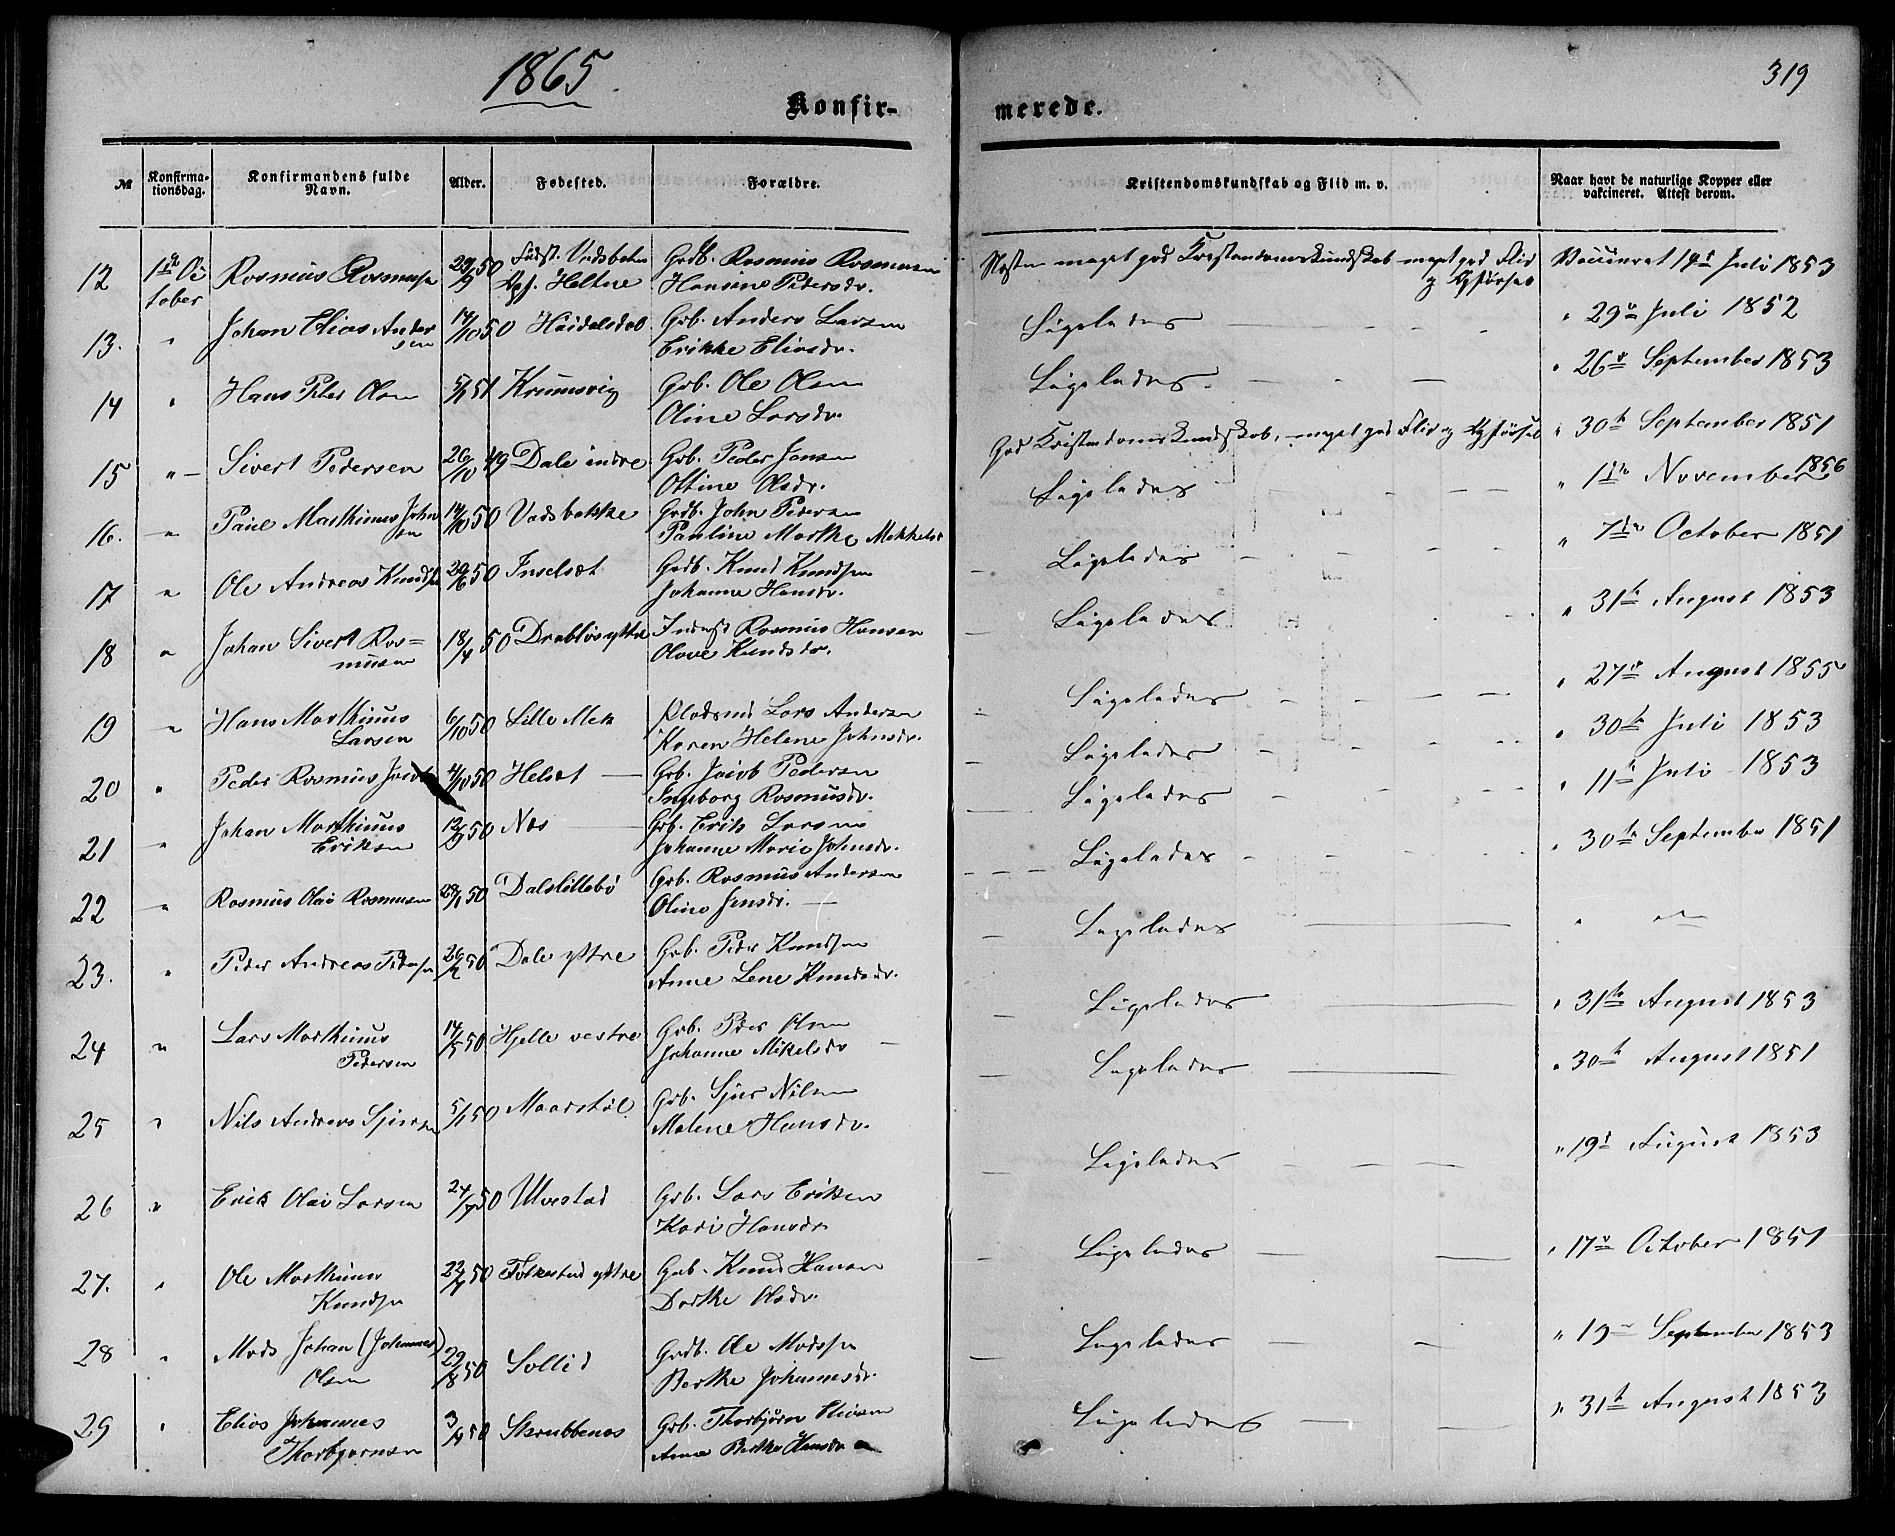 1865
319
Konfir-
merede.
№
Konfirma-
tionsdag.
Konfirmandens fulde
Navn.
Alder.
Fødested.
Forældre.
Kristendomskundskab og Flid m. v.
Naar havt de naturlige Kopper eller
vakcineret. Attest derom.
12 1ste Oc Rasmus Rasmusen 29/9 50 Grdb. Rasmus Rasmusen Næsten meget god Kristendomskundskab meget god Flid Vaccineret 14d Juli 1853
tober Hansine Pedersdr. og Opførsel
13. " Johan Elias Ander 14/10 50 Grb. Anders Larsen Ligeledes " 29de Juli 1852
sen Erikke Eliasdr.
14 " Hans Peter Olsen 5/1 51 Krumsvig Grb. Ole Olsen Ligeledes " 26de September 1853
Oline Larsdr.
15 " Sivert Pedersen 26/10 49 Dale indre Grb. Peder Jensen God Kristendomskundskab, meget god Flid og Opførsel " 30te September 1851
Oltine Olsdr.
16. " Paul Marthinus John 14/10 50 Vadsbakke Grdb. John Pedersen Ligeledes " 11te November 1856
sen Pauline Marthe Mikkelsd
17 " Ole Andreas Knudsen 29/6 50 Inselset Grdb. Knud Knudsen Ligeledes " 7de October 1851
Johanne Hansdr.
18 " Johan Sivert Ras= 18/4 50 Drabløs yttre Inderst Rasmus Hansen Ligeledes " 31te August 1853
musen Olave Knudsdr.
19 " Hans Marthinus 6/10 50 Lille Mek Pladsmd Lars Andersen Ligeledes " 27de August 1855
Larsen Karen Helene Johnsdr.
20 " Peder Rasmus 4/10 50 Helset Grb. Jacob Pedersen Ligeledes " 30te Juli 1853
Ingeborg Rasmusdr.
21 " Johan Marthinus 12/9 50 Næs Grb. Erik Larsen Ligeledes " 11te Juli 1853
Eriksen Johanne Marie Johnsdr.
22 " Rasmus Olai Rasmusen 50 Dalslillebø Grb. Rasmus Andersen Ligeledes " 30te September 1851
Oline Jensdr.
23. " Peder Andreas Pedersen 26/2 50 Dale yttre Grb. Peder Knudsen Ligeledes " "
Anne Lene Knudsdr.
24 " Lars Marthinus 14/5 50 Hjelle vestre Grb. Peder Olsen Ligeledes " 31te August 1853
Pedersen Johanne Mikelsdr
25 " Nils Andreas Sjursen 5/1 50 Maarstøl Grb. Sjur Nilsen Ligeledes " 30te August 1851
Malene Hansdr.
26 " Erik Olai Larsen 24/7 50 Ulvestad Grb. Lars Eriksen Ligeledes " 19d August 1853
Kari Hansdr
27. " Ole Marthinus 22/7 50 Folkestad yttre Grb. Knud Hansen Ligeledes " 17de October 1851
Knudsen Dorthe Olsdr.
28 " Mads Johan (Johannes) 29/8 50 Sollid Grdb. Ole Madsen Ligeledes " 19de September 1853
Olsen Berthe Johannesdr.
29 " Elias Johannes 3/4 50 Skrubbenes Grb. Thorbjørn Eliasen Ligeledes " 31te August 1853
Thorbjørnsen Anne Berthe Hansdr